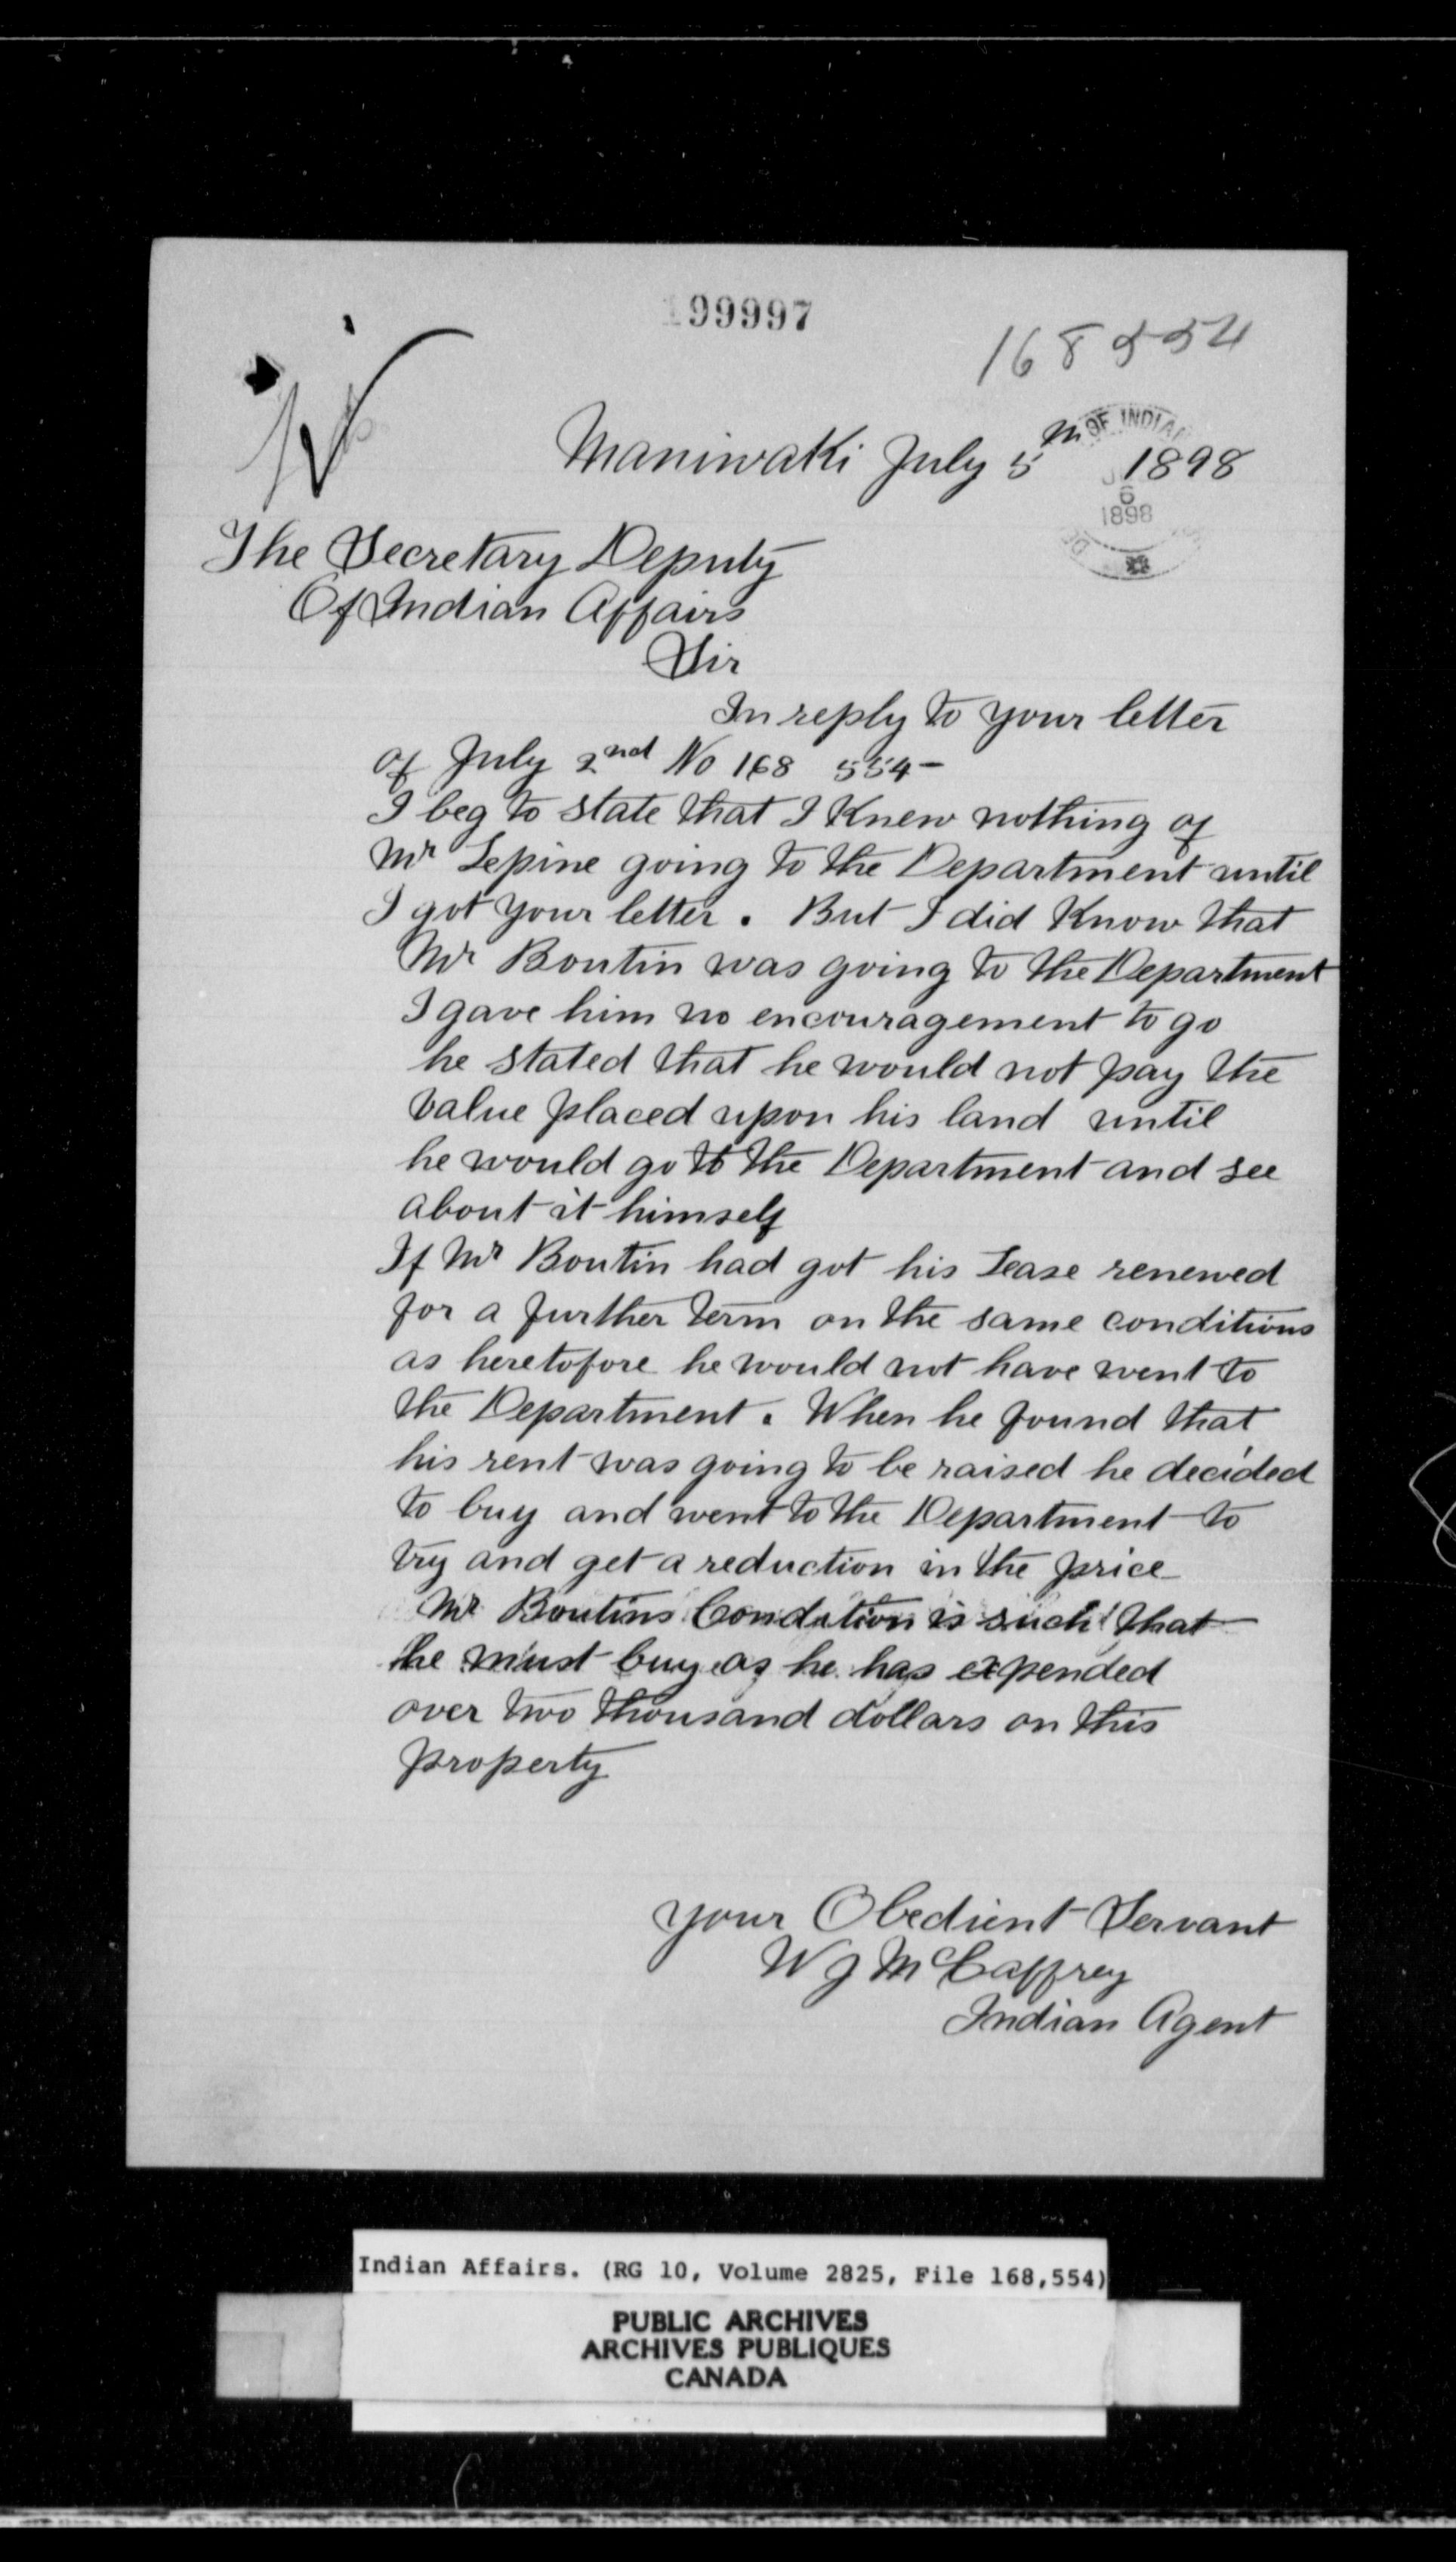 199997
168554
Maniwaki July 5th 1898
OF INDIAN
6
1898
The Secretary Deputy
Of Indian Affairs
Sir
In reply to your letter
of July 2nd No 168 554-
I beg to state that I Knew nothing of
Mr Lepine going to the Department until
I got your letter. But I did Know that
Mr Boutin was going to the Department
I gave him no encouragement to go
he stated that he would not pay the
value placed upon his land until
he would go to the Department and see
about it himself
If Mr Boutin had got his Lease renewed
for a further term on the same conditions
as heretofore he would not have went to
the Department. When he found that
his rent was going to be raised he decided
to buy and went to the Department to
try and get a reduction in the price
Mr Boutins Condition is such that
he must buy as he has expended
over two thousand dollars on this
property
your Obedient Servant
W J McCaffrey
Indian Agent
Indian Affairs. (RG 10, Volume 2825, File 168,554)
PUBLIC ARCHIVES
ARCHIVES PUBLIQUES
CANADA